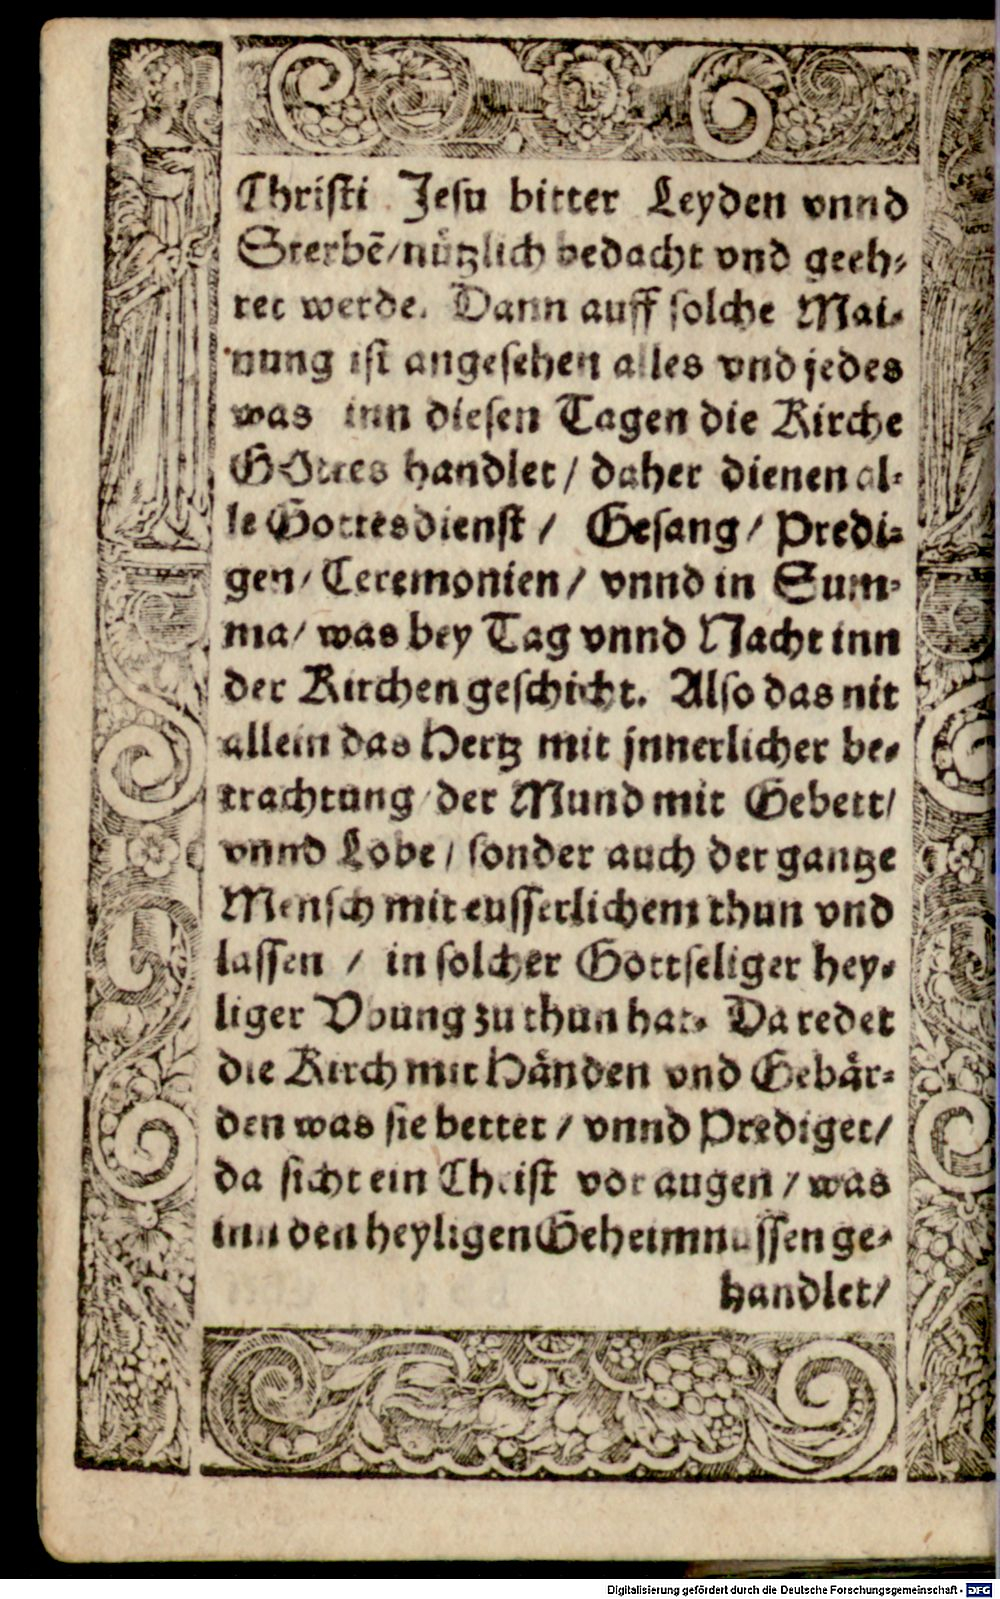 Christi Jesu bitter Leyden vnnd
Sterbẽ/nützlich bedacht vnd geeh-
ret werde. Dann auff solche Mai-
nung ist angesehen alles vnd jedes
was inn diesen Tagen die Kirche
GOttes handlet / daher dienen al-
le Gottesdienst / Gesang / Predi-
gen / Ceremonien / vnnd in Sum-
ma / was bey Tag vnnd Nacht inn
der Kirchen geschicht. Also das nit
allein das Hertz mit jnnerlicher be-
trachtung der Mund mit Gebett/
vnnd Lobe / sonder auch der gantze
Mensch mit eusserlichem thun vnd
lassen / in solcher Gottseliger hey-
liger Vbung zu thun hat. Da redet
die Kirch mit Händen vnd Gebär-
den was sie bettet / vnnd Prediget/
da sicht ein Christ vor augen / was
inn den heyligen Geheimnussen ge-
handlet/
Digitalisierung gefördert durch die Deutsche Forschungsgemeinschaft - DFG